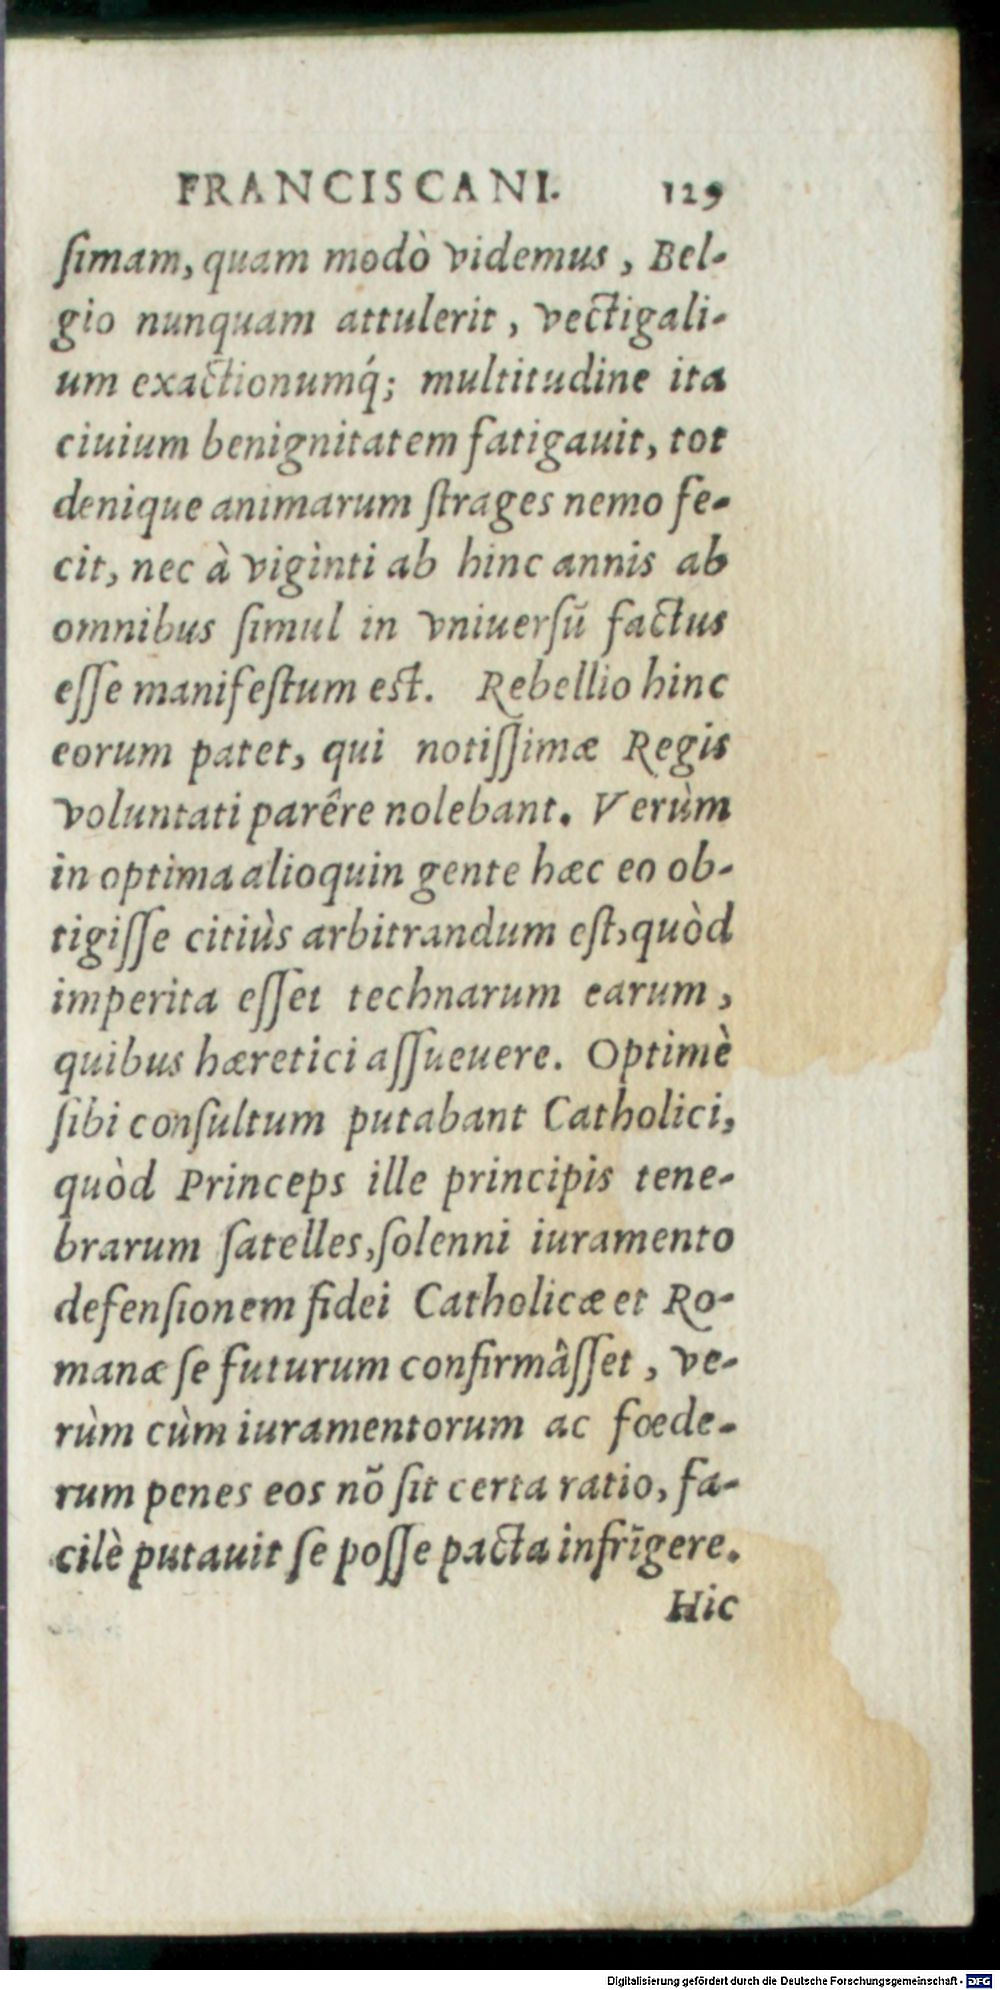 FRANCISCANI. 129
ſimam, quam modò videmus, Bel-
gio nunquam attulerit, vectigali-
um exactionumq́; multitudine ita
ciuium benignitatem fatigauit, tot
denique animarum ſtrages nemo fe-
cit, nec à viginti ab hinc annis ab
omnibus ſimul in vniuerſũ factus
eſſe manifeſtum est. Rebellio hinc
eorum patet, qui notiſſimæ Regis
voluntati parêre nolebant. Verùm
in optima alioquin gente hæc eo ob-
tigiſſe citiùs arbitrandum eſt, quòd
imperita eſſet technarum earum,
quibus hæretici aſſueuere. Optimè
ſibi conſultum putabant Catholici,
quòd Princeps ille principis tene-
brarum ſatelles, ſolenni iuramento
defenſionem fidei Catholicæ et Ro-
manæ ſe futurum confirmâſſet, ve-
rùm cùm iuramentorum ac fœde-
rum penes eos nõ ſit certa ratio, fa-
cilè putauit ſe poſſe pacta infrĩgere.
Hic
Digitalisierung gefördert durch die Deutsche Forschungsgemeinschaft - DFG